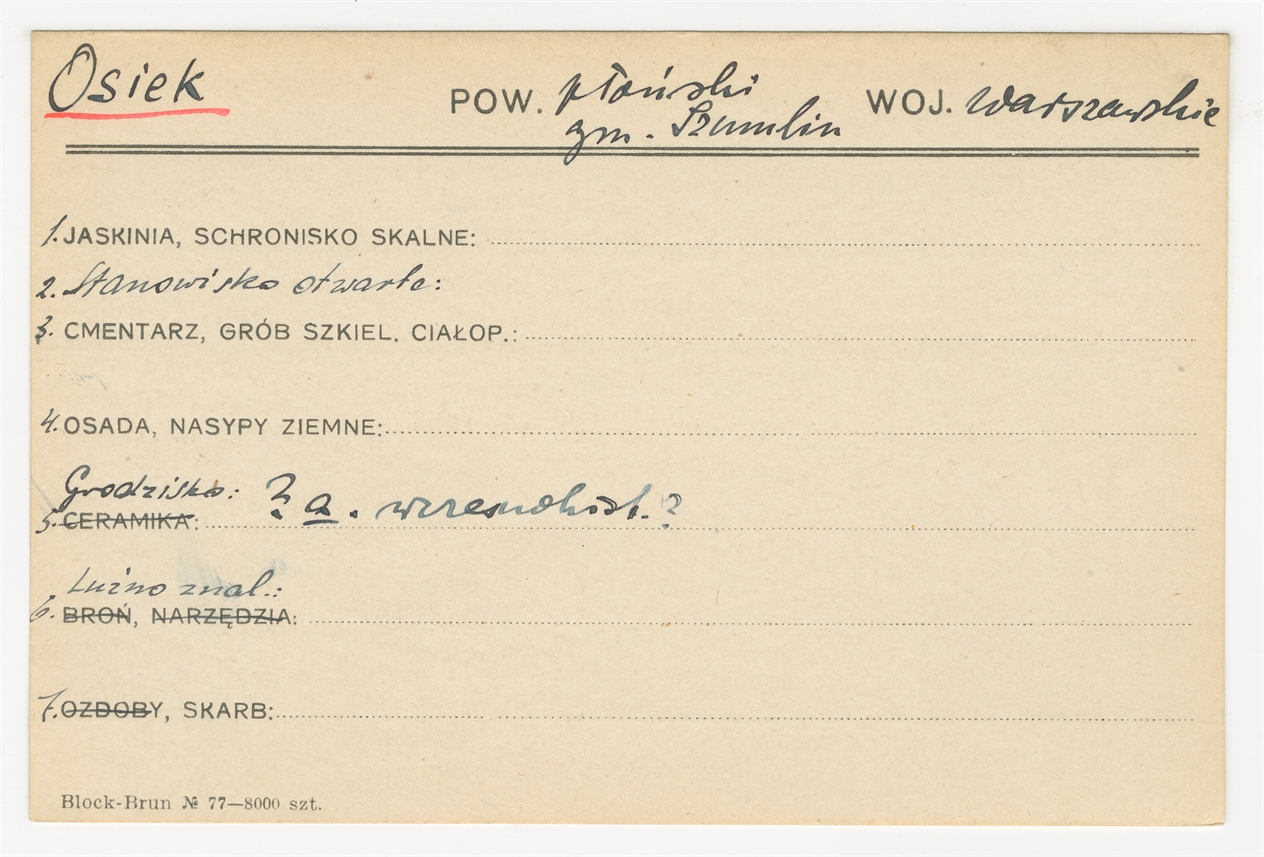 Osiek
POW. płoński WOJ. Warszawskie
gm. Szumlin
1. JASKINIA, SCHRONISKO SKALNE:
2. Stanowisko otwarte:
3. CMENTARZ, GRÓB SZKIEL. CIAŁOP.:
4. OSADA, NASYPY ZIEMNE:
Grodzisko: ? a. wczesnohist. ?
5. CERAMIKA:
Luźno znal.:
6. BROŃ, NARZĘDZIA:
7. OZDOBY, SKARB:
Block-Brun № 77—8000 szt.